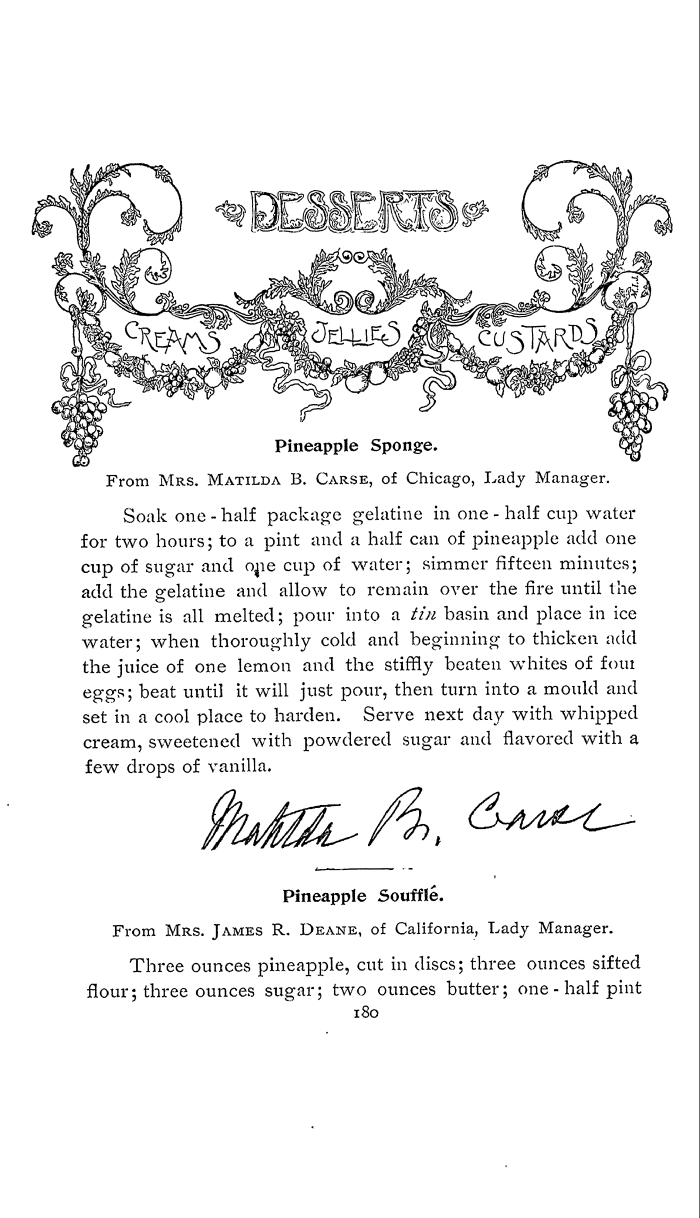 DESSERTS
CREAMS JELLIES CUSTARDS
Pineapple Sponge.
From MRS. MATILDA B. CARSE, of Chicago, Lady Manager.
Soak one-half package gelatine in one-half cup water
for two hours; to a pint and a half can of pineapple add one
cup of sugar and one cup of water; simmer fifteen minutes;
add the gelatine and allow to remain over the fire until the
gelatine is all melted; pour into a tin basin and place in ice
water; when thoroughly cold and beginning to thicken add
the juice of one lemon and the stiffly beaten whites of four
eggs; beat until it will just pour, then turn into a mould and
set in a cool place to harden. Serve next day with whipped
cream, sweetened with powdered sugar and flavored with a
few drops of vanilla.
Matilda B. Carse
Pineapple Soufflé.
From MRS. JAMES R. DEANE, of California, Lady Manager.
Three ounces pineapple, cut in discs; three ounces sifted
flour; three ounces sugar; two ounces butter; one-half pint
180